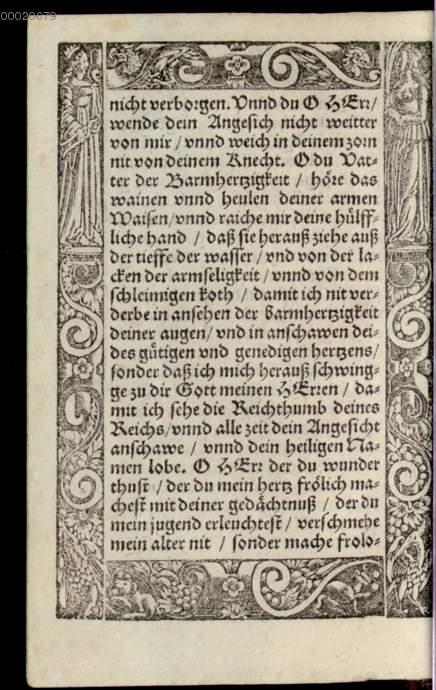 00020679
nicht verborgen. Vnnd du O HErr/
wende dein Angesich nicht weitter
von mir / vnnd weich in deinem zorn
nit von deinem Knecht. O du Vat-
ter der Barmhertzigkeit / höre das
wainen vnnd heulen deiner armen
Waisen/ vnnd raiche mir deine hülff-
liche hand / daß sie herauß ziehe auß
der tieffe der wasser / vnd von der la-
cken der armseligkeit / vnnd von dem
schleimigen koth / damit ich nit ver-
derbe in ansehen der Barmhertzigkeit
deiner augen/ vnd in anschawen dei-
des gütigen vnd genedigen hertzens/
sonder daß ich mich herauß schwing-
ge zu dir Gott meinen HErren / da-
mit ich sehe die Reichthumb deines
Reichs/ vnnd alle zeit dein Angesicht
anschawe / vnnd dein heiligen Na-
men lobe. O HErr der du wunder
thust / der du mein hertz frölich ma-
chest mit deiner gedächtnuß / der du
mein jugend erleuchtest / verschmehe
mein alter nit / sonder mache frolo-